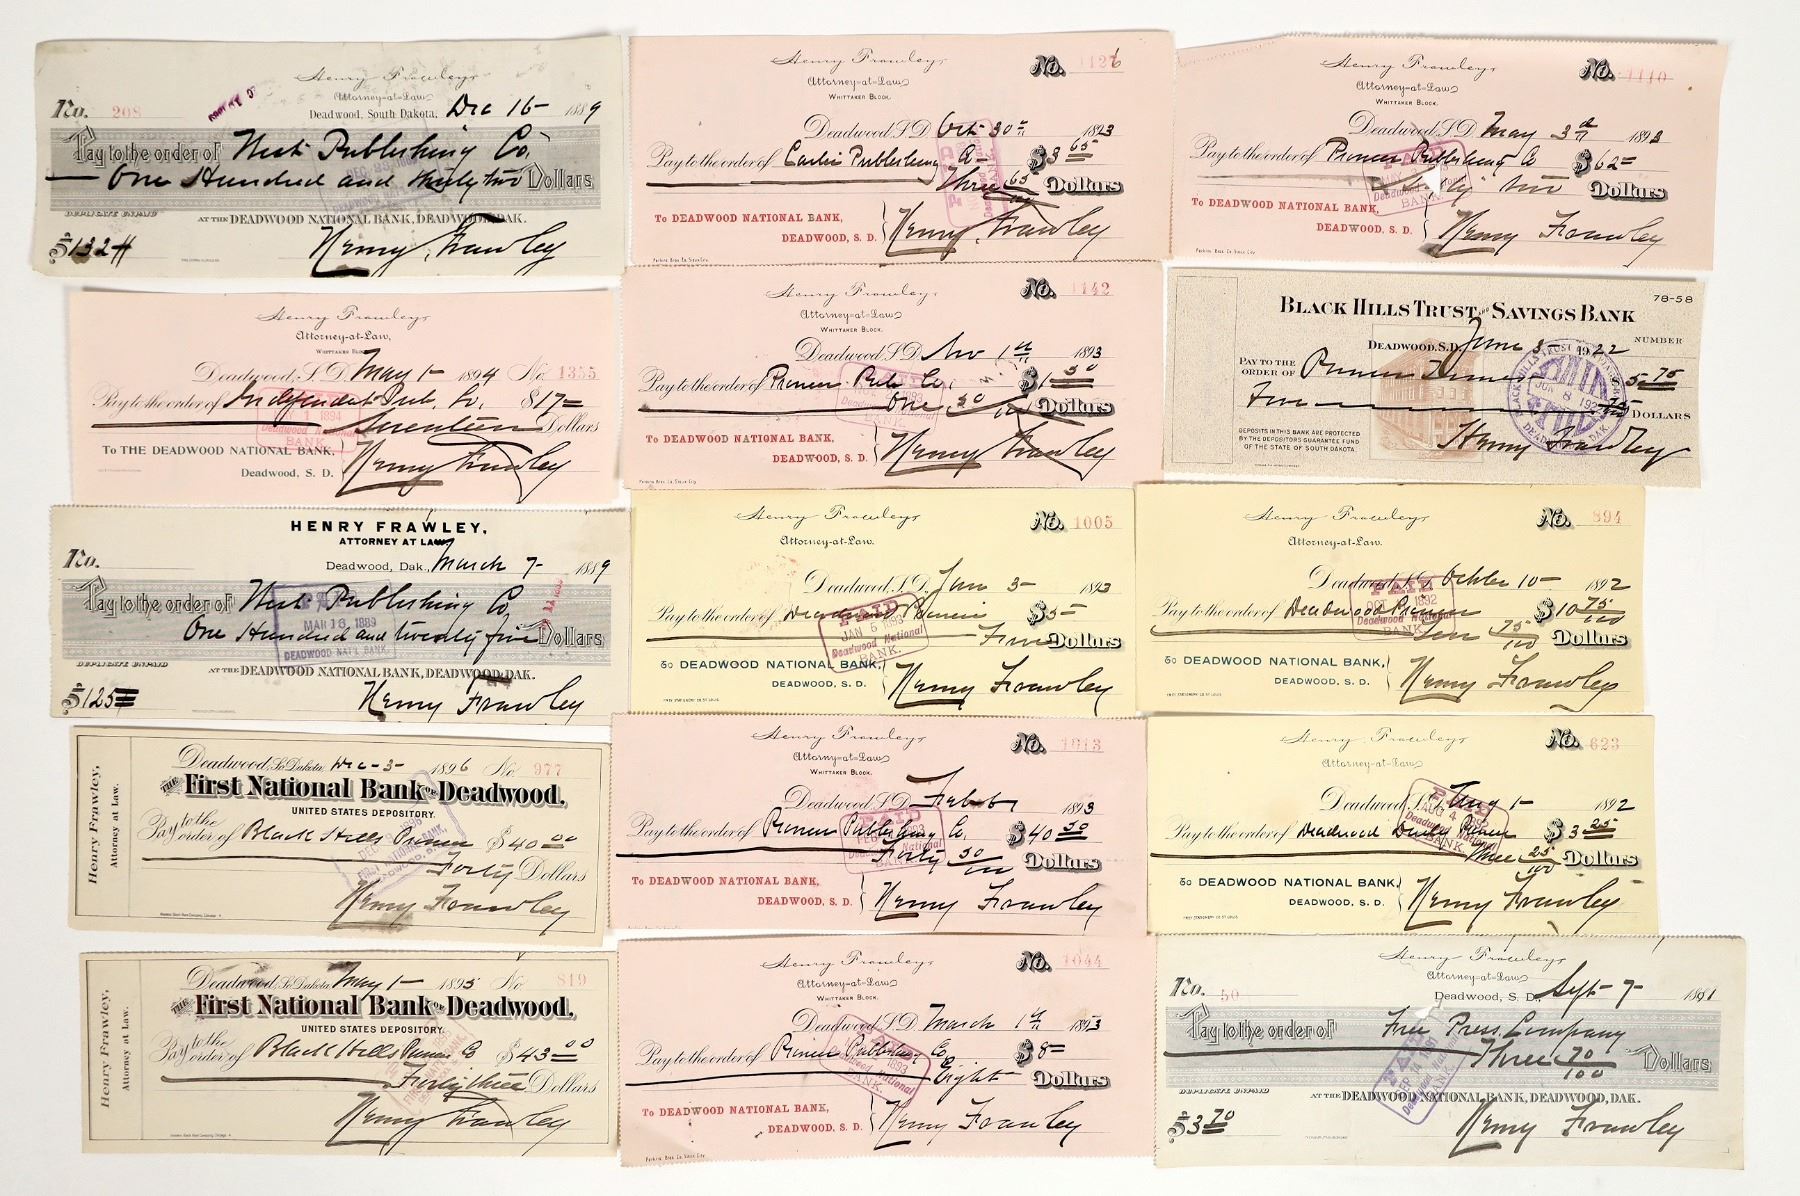 Henry Frawley,
Attorney-at-Law
No. 208
Deadwood, South Dakota, Dec 16 1889
Pay to the order of West Publishing Co.
One Hundred and thirty two Dollars
DUPLICATE UNPAID
AT THE DEADWOOD NATIONAL BANK, DEADWOOD, DAK.
$132 Henry Frawley
Henry Frawley,
Attorney-at-Law
WHITTAKER BLOCK.
No. 1126
Deadwood, S.D. Oct. 30 1893
Pay to the order of Publishing Co $3 65
Three 65/100 Dollars
To DEADWOOD NATIONAL BANK,
DEADWOOD, S. D.
Henry Frawley
Perkins Bros. Co. Sioux City
Henry Frawley,
Attorney-at-Law
WHITTAKER BLOCK.
No. 1110
Deadwood, S.D. May 3d 1893
Pay to the order of Pioneer Publishing Co $62
Sixty two Dollars
To DEADWOOD NATIONAL BANK,
DEADWOOD, S. D.
Henry Frawley
Perkins Bros. Co. Sioux City
Henry Frawley,
Attorney-at-Law,
WHITTAKER BLOCK
Deadwood, S. D. May 1 1894 No. 1355
Pay to the order of Independent Pub. Co. $17
Seventeen Dollars
To THE DEADWOOD NATIONAL BANK,
Deadwood, S. D.
Henry Frawley
Henry Frawley,
Attorney-at-Law
WHITTAKER BLOCK.
No. 1142
Deadwood, S.D. Nov 1st 1893
Pay to the order of Pioneer Pub Co. $1 50
One 50/100 Dollars
To DEADWOOD NATIONAL BANK,
DEADWOOD, S. D.
Henry Frawley
Perkins Bros. Co. Sioux City
78-58
BLACK HILLS TRUST AND SAVINGS BANK
DEADWOOD, S.D. June 3 1922 NUMBER
PAY TO THE ORDER OF Pioneer Times $5 75
Five 75/100 DOLLARS
DEPOSITS IN THIS BANK ARE PROTECTED
BY THE DEPOSITORS GUARANTEE FUND
OF THE STATE OF SOUTH DAKOTA
Henry Frawley
HENRY FRAWLEY,
ATTORNEY AT LAW
No.
Deadwood, Dak., March 7 1889
Pay to the order of West Publishing Co,
One Hundred and twenty five Dollars
PAID
MAR 13 1889
DEADWOOD NAT'L BANK
DUPLICATE UNPAID
AT THE DEADWOOD NATIONAL BANK, DEADWOOD, DAK.
$125 Henry Frawley
Henry Frawley,
Attorney-at-Law.
No. 1005
Deadwood, S.D. 3 1893
Pay to the order of Deadwood Pioneer $5
Five Dollars
PAID
JAN 5 1893
Deadwood National
BANK.
To DEADWOOD NATIONAL BANK,
DEADWOOD, S. D.
Henry Frawley
Henry Frawley,
Attorney-at-Law.
No. 894
Deadwood, S.D. October 10 1892
Pay to the order of Deadwood Pioneer $10 75/100
Ten 75/100 Dollars
PAID
Deadwood National
BANK
To DEADWOOD NATIONAL BANK,
DEADWOOD, S. D.
Henry Frawley
Henry Frawley,
Attorney at Law.
Deadwood, So. Dakota, Dec 3 1896 No. 977
THE First National Bank OF Deadwood.
UNITED STATES DEPOSITORY.
Pay to the order of Black Hills Pioneer $40 00
Forty Dollars
Henry Frawley
Henry Frawley,
Attorney-at-Law
WHITTAKER BLOCK.
No. 1013
Deadwood, S.D. 1893
Pay to the order of Pioneer Publishing Co. $40 50
Forty 50/100 Dollars
To DEADWOOD NATIONAL BANK,
DEADWOOD, S. D.
Henry Frawley
Henry Frawley,
Attorney-at-Law
No. 623
Deadwood, S.D. Aug 1 1892
Pay to the order of Deadwood Daily Pioneer $3 25
Three 25/100 Dollars
PAID
AUG 4 1892
Deadwood National
BANK.
To DEADWOOD NATIONAL BANK,
DEADWOOD, S. D.
Henry Frawley
Henry Frawley,
Attorney at Law.
Deadwood, So. Dakota, May 1 1895 No. 819
THE First National Bank OF Deadwood.
UNITED STATES DEPOSITORY.
Pay to the order of Black Hills Pioneer Co $43 00
Forty three Dollars
Henry Frawley
Henry Frawley,
Attorney-at-Law
WHITTAKER BLOCK.
No. 1044
Deadwood, S.D. March 1st 1893
Pay to the order of Pioneer Publishing Co $8
Eight Dollars
To DEADWOOD NATIONAL BANK,
DEADWOOD, S. D.
Henry Frawley
Perkins Bros. Co. Sioux City
Henry Frawley,
Attorney-at-Law
No. 50
Deadwood, S. D. Sept 7 1891
Pay to the order of Free Press Company
Three 70/100 Dollars
DUPLICATE UNPAID
AT THE DEADWOOD NATIONAL BANK, DEADWOOD, DAK.
$3 70 Henry Frawley